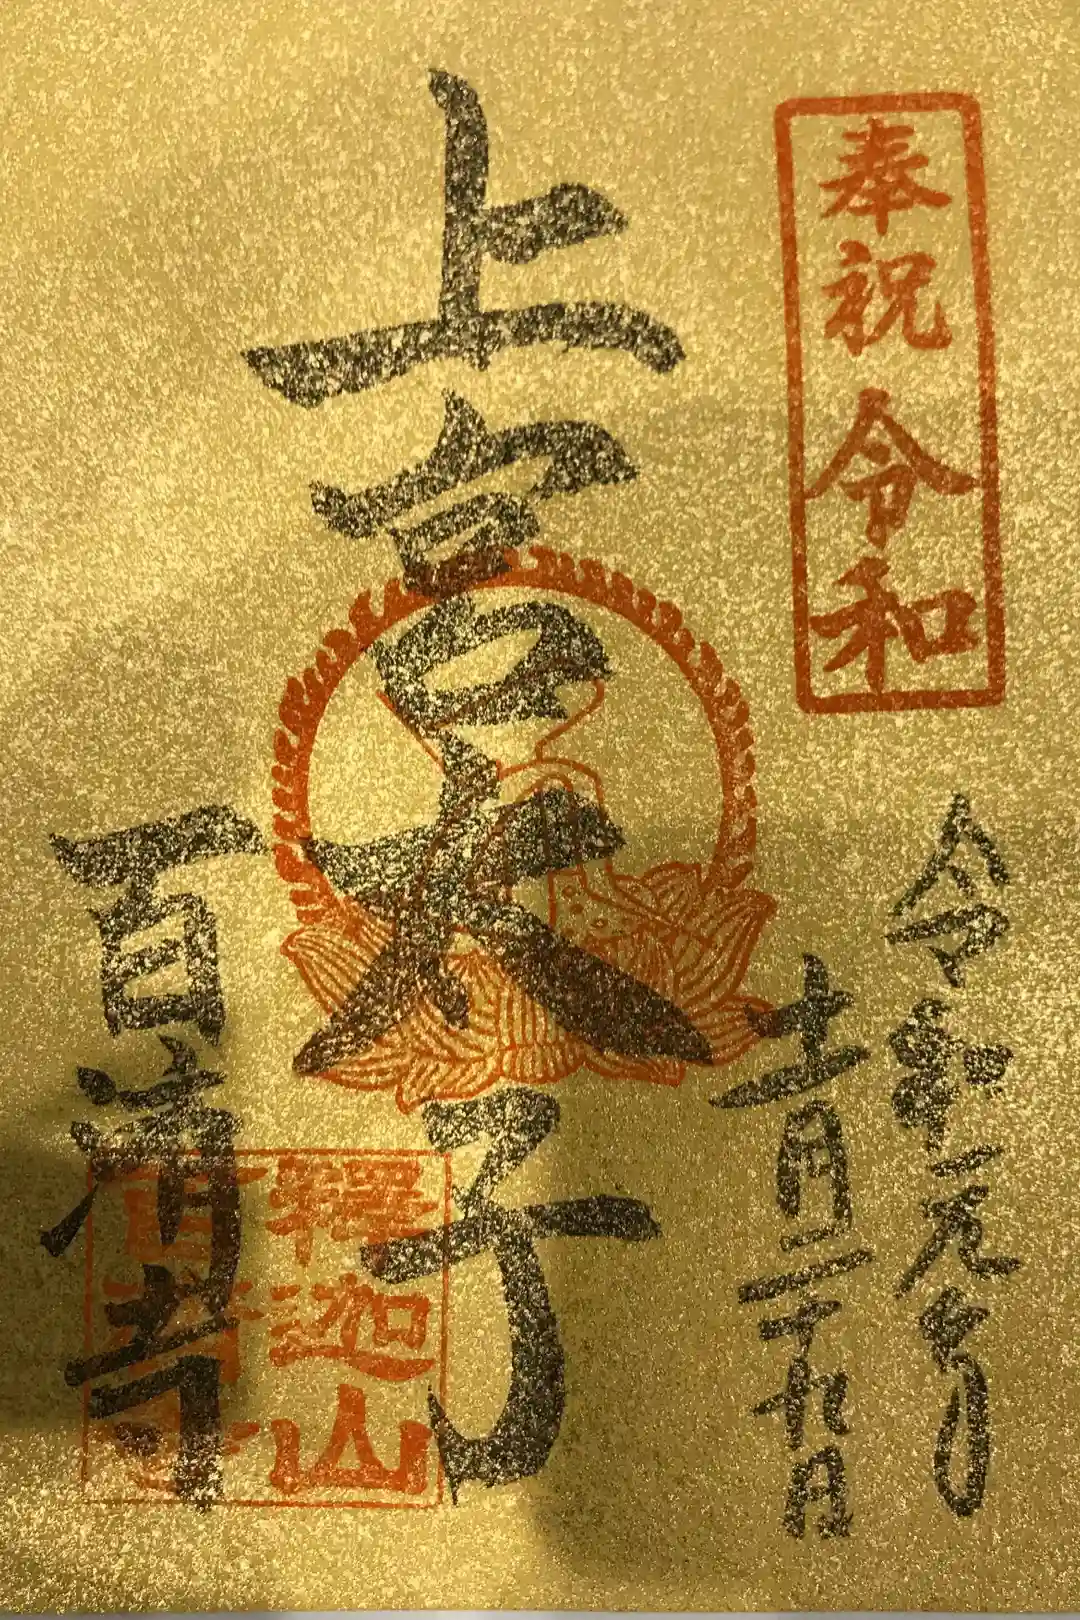 奉祝令和
令和元年
十一月二十九日
上宮太子
百済寺
釋迦山